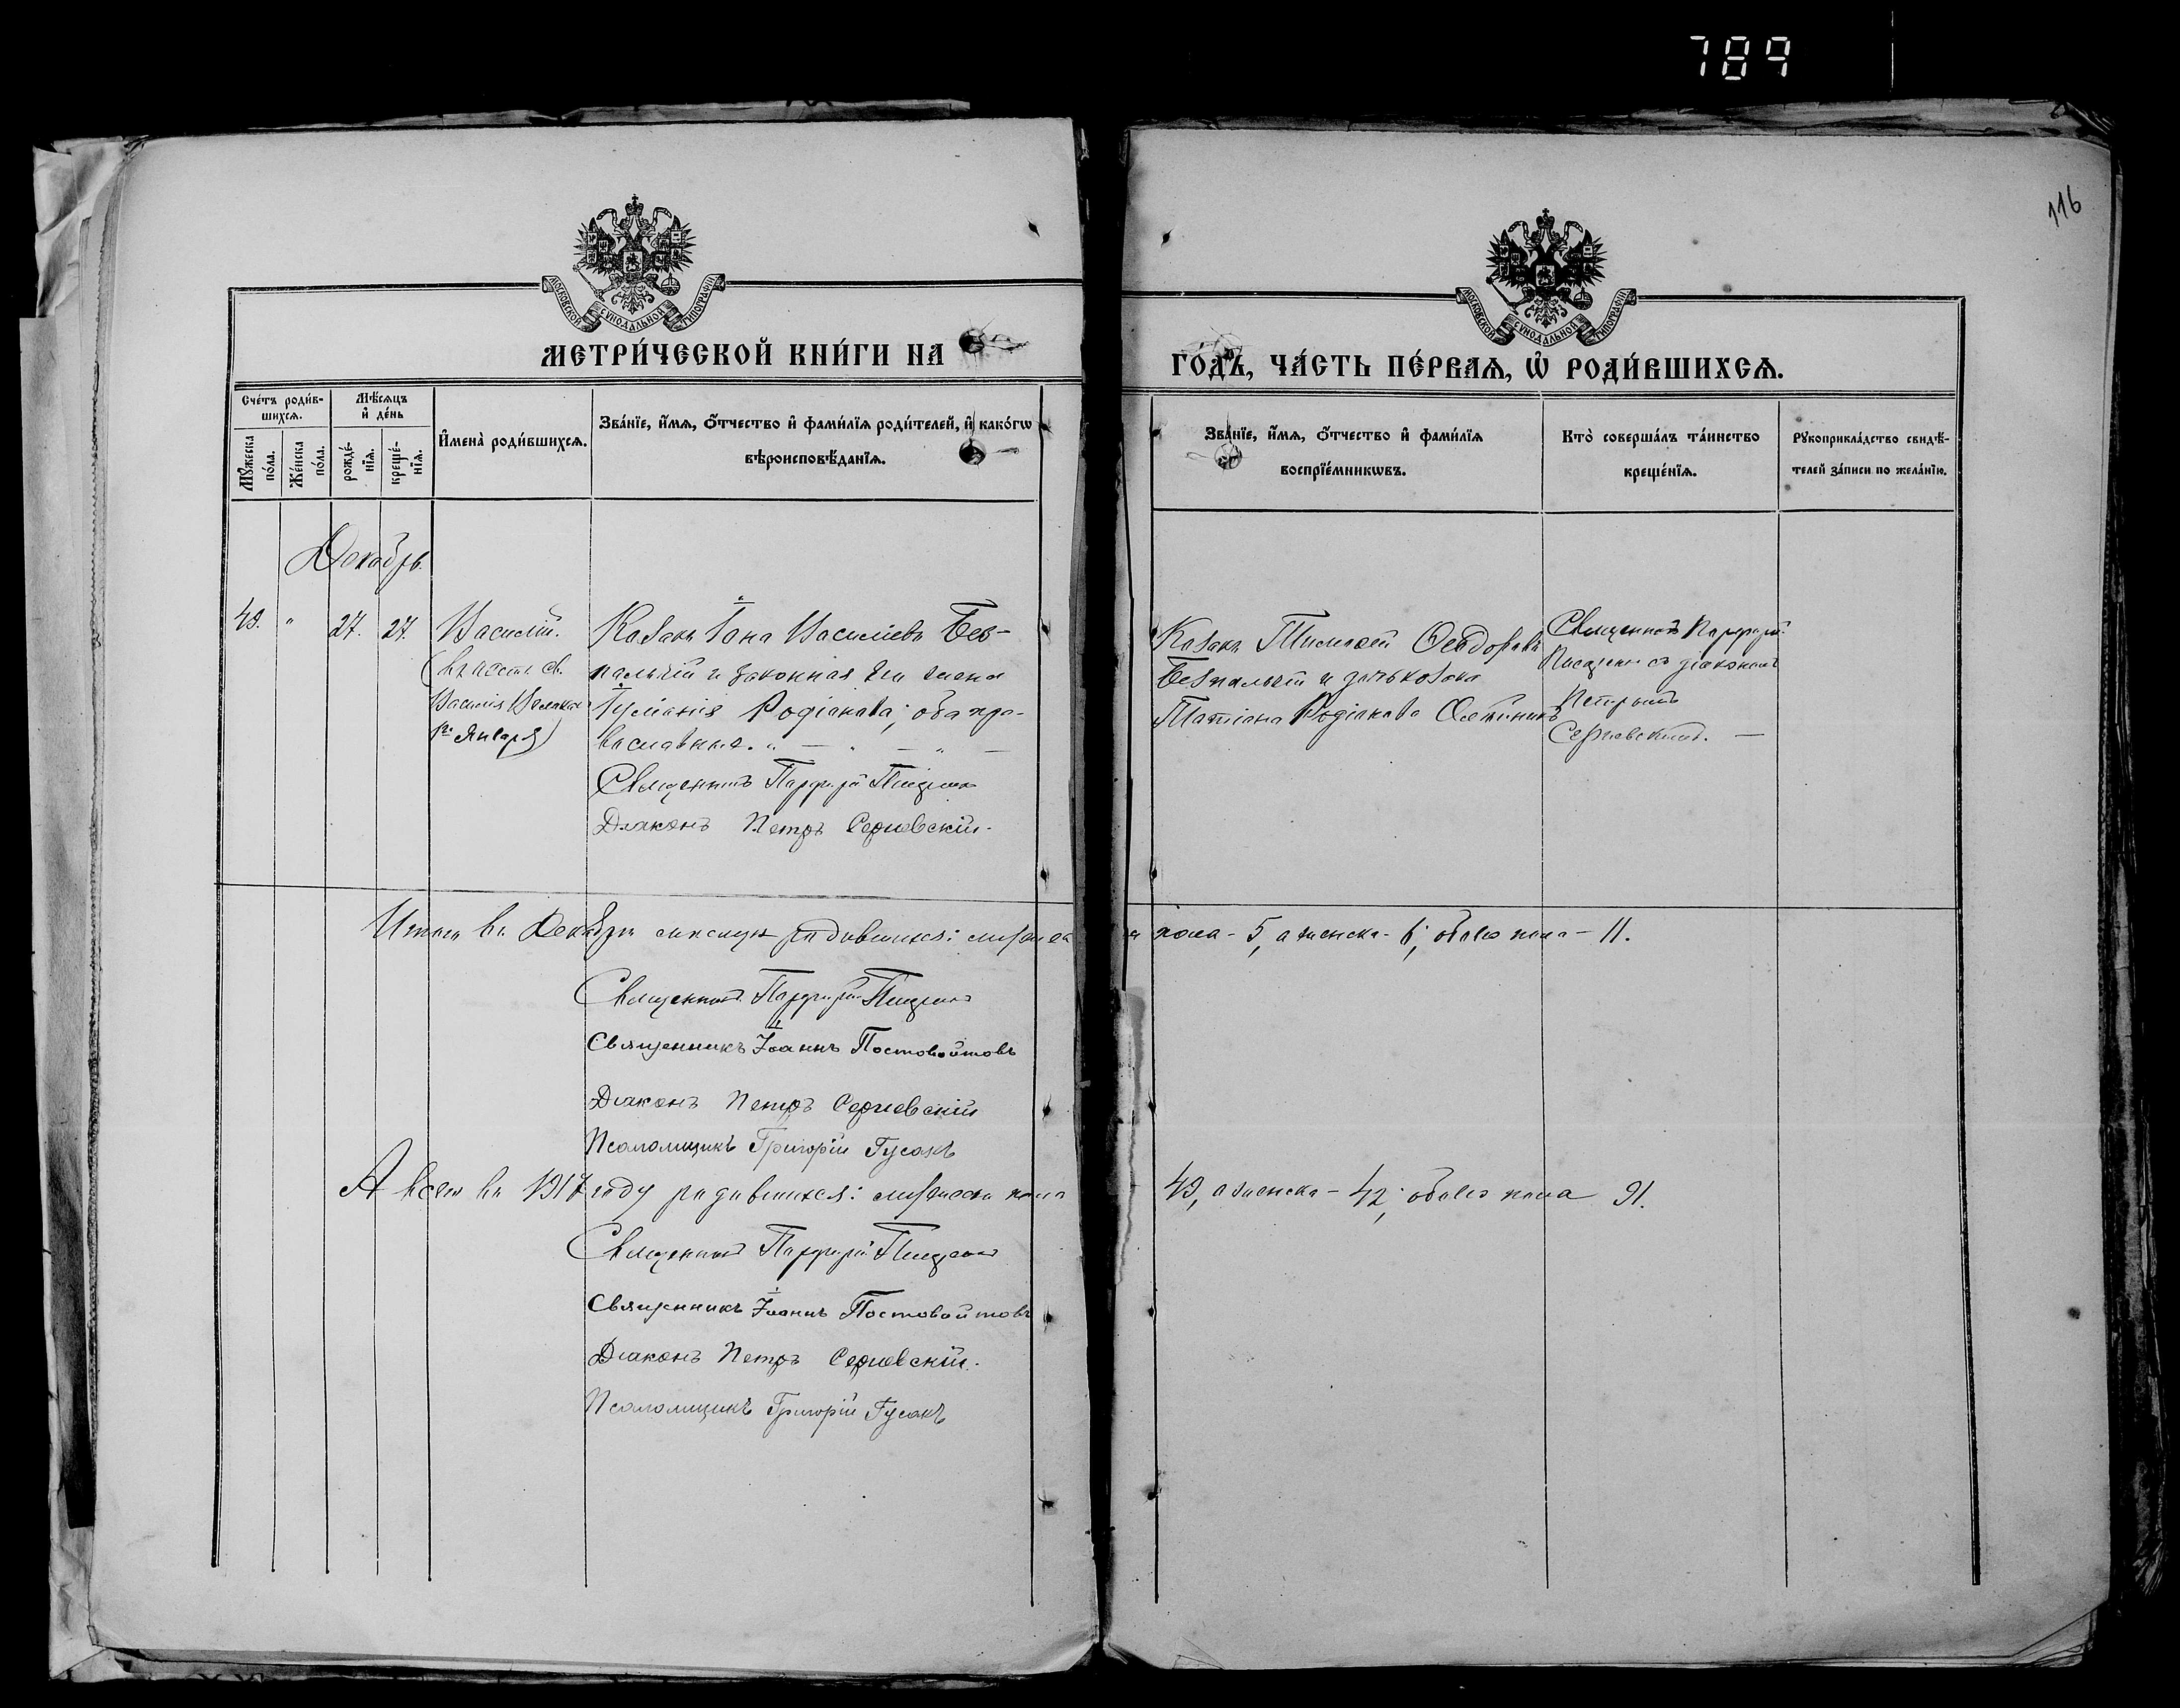 789
116
МОСКОВСКОЙ СѴНОДАЛЬНОЙ ТИПОГРАФІИ
МОСКОВСКОЙ СѴНОДАЛЬНОЙ ТИПОГРАФІИ
МЕТРИ́ЧЕСКОЙ КНИ́ГИ НА
ГО́ДЪ, ЧА́СТЬ ПЕ́РВАѦ, Ѡ҆ РОДИ́ВШИХСѦ.
Сче́тъ роди́в-
шихсѧ.
Мѣ́сѧцъ
и҆ де́нь
Мꙋ́жеска
по́ла.
Же́нска
по́ла.
рожде́-
нїѧ.
креще́-
нїѧ.
И҆мена̀ роди́вшихсѧ.
Зва́нїе, и҆́мѧ, ѻ҆́тчество и҆ фами́лїѧ роди́телей, и҆ како́гѡ
вѣроисповѣ́данїѧ.
Зва́нїе, и҆́мѧ, ѻ҆́тчество и҆ фами́лїѧ
воспрїе́мникѡвъ.
Кто̀ соверша́лъ та́инство
креще́нїѧ.
Рꙋкоприкла́дство свидѣ́-
телей за́писи по жела́нїю.
Декабрь.
49. " 27. 27. Василій.
(въ честь св.
Василія Великаго
1го Января)
Козакъ Іона Василіевъ Без-
пальчій и законная его жена
Іуліанія Родіонова; оба пра-
вославные. " — " — " —
Священникъ Порфирій Пищенко
Діаконъ Петръ Сергіевскій.
Козакъ Тимофей Ѳеодоровъ
Безпальчій и дочь козака
Татіана Родіонова Олейникъ
Священникъ Порфирій
Пищенко съ діакономъ
Петромъ
Сергіевскимъ. —
Итого въ Декабрѣ мѣсяцѣ родившихся: мужеска пола - 5, а женска - 6; обоего пола - 11.
Священникъ Порфирій Пищенко
Священникъ Іоаннъ Постовойтовъ
Діаконъ Петръ Сергіевскій
Псаломщикъ Григорій Гусакъ
А всего въ 1917 году родившихся: мужеска пола 49, а женска - 42; обоего пола 91.
Священникъ Порфирій Пищенко
Священникъ Іоаннъ Постовойтовъ
Діаконъ Петръ Сергіевскій.
Псаломщикъ Григорій Гусакъ